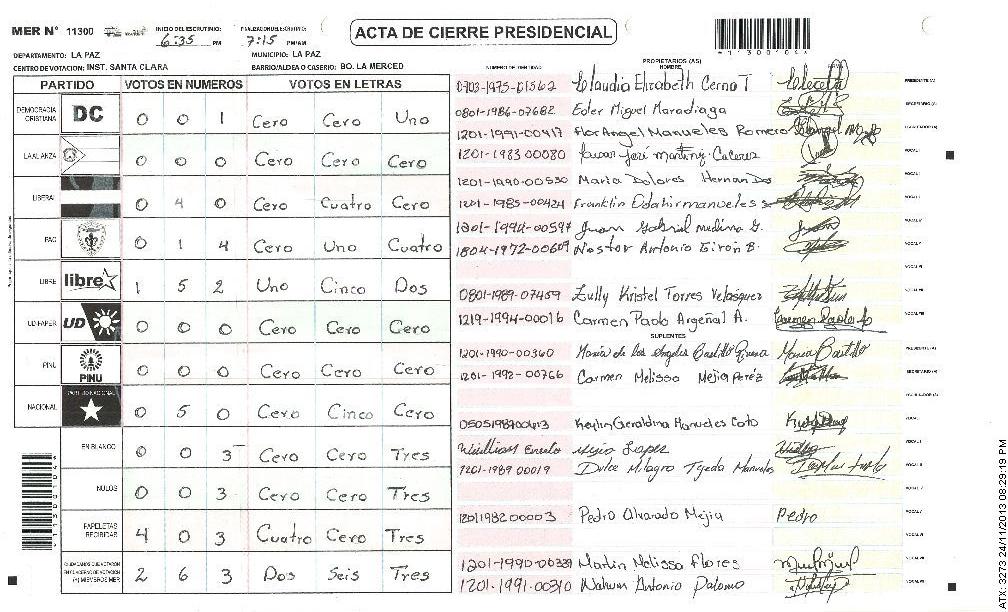 MER N° 11300
INICIO DEL ESCRUTINIO: 6:35 PM
FINALIZACION ESCRUTINIO: 7:15 PM/AM
ACTA DE CIERRE PRESIDENCIAL
DEPARTAMENTO: LA PAZ
MUNICIPIO: LA PAZ
CENTRO DE VOTACION: INST. SANTA CLARA
BARRIO/ALDEA O CASERIO: BO. LA MERCED
PARTIDO VOTOS EN NUMEROS VOTOS EN LETRAS
DEMOCRACIA CRISTIANA DC 0 0 1 Cero Cero Uno
LA ALIANZA 0 0 0 Cero Cero Cero
LIBERAL 0 4 0 Cero Cuatro Cero
PAC 0 1 4 Cero Uno Cuatro
LIBRE libre 1 5 2 Uno Cinco Dos
UD-FAPER UD 0 0 0 Cero Cero Cero
PINU PINU 0 0 0 Cero Cero Cero
NACIONAL PARTIDO NACIONAL 0 5 0 Cero Cinco Cero
EN BLANCO 0 0 3 Cero Cero Tres
NULOS 0 0 3 Cero Cero Tres
PAPELETAS RECIBIDAS 4 0 3 Cuatro Cero Tres
CIUDADANOS QUE VOTARON EN CUADERNO DE VOTACION (+) MIEMBROS MER 2 6 3 Dos Seis Tres
PROPIETARIOS (AS)
NUMERO DE IDENTIDAD NOMBRE
0703-1975-01562 Claudia Elizabeth Cerna T PRESIDENTE (A)
0801-1986-07682 Eder Miguel Maradiaga SECRETARIO (A)
1201-1991-00417 Flor Angel Manueles Romero ESCRUTADOR (A)
1201-1983 00080 José Martinez Caceres VOCAL I
1201-1990-00530 Maria Dolores Hernandes
1201-1985-00424 Franklin
Juan Gabriel medina G.
1804-1972-00609 Nestor Antonio Giron B.
0801-1989-07459 Zully Kristel Torres Velasquez
1219-1994-00016 Carmen Paola Argeñal A.
SUPLENTES
1201-1990-00360 Maria de los Angeles Castillo Maria Castillo PRESIDENTE (A)
1201-1992-00766 Carmen Melissa Mejia Peréz SECRETARIO (A)
ESCRUTADOR (A)
Keylin Geraldina Manueles Coto
William Mejia Lopez
1201-1989 00019 Dulce Milagro Tejeda Manueles
1201198200003 Pedro Alvarado Mejia Pedro
1201-1990-00339 Melissa Flores
1201-1991-00310 Antonio Palomo
11300104
ATX-3273 24/11/2013 08:29:19 PM